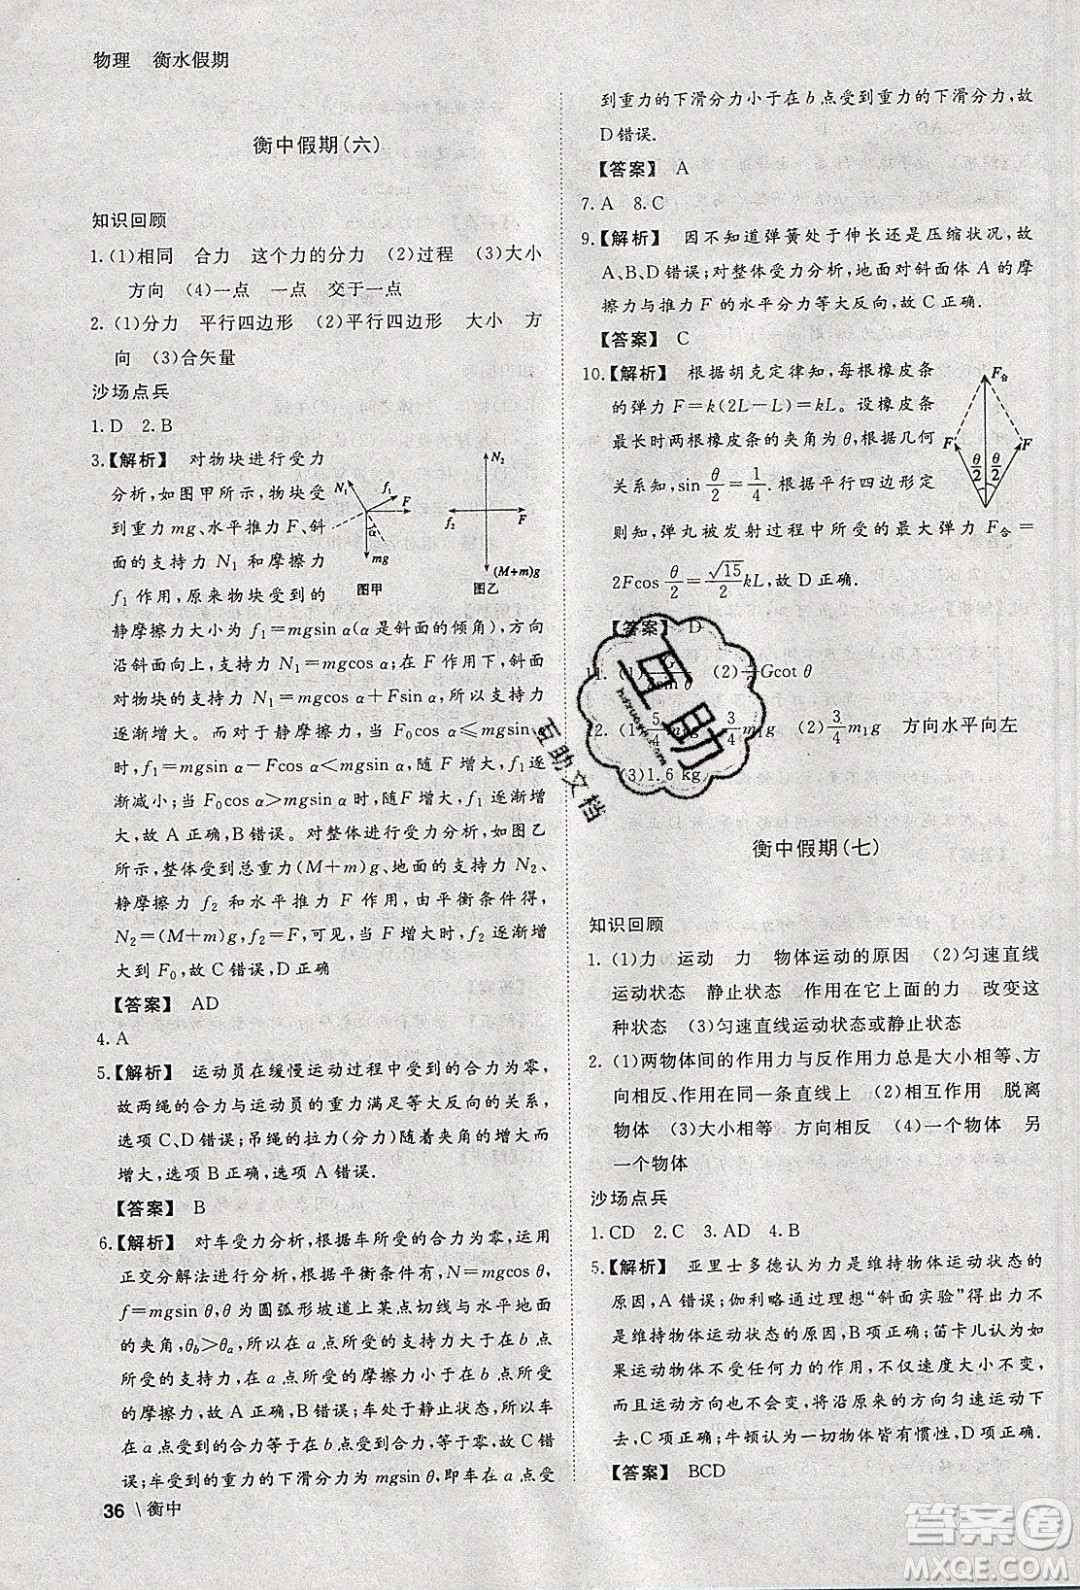 物理 衡水假期
衡中假期(六)
知识回顾
1.(1)相同 合力 这个力的分力 (2)过程 (3)大小
方向 (4)一点 一点 交于一点
2.(1)分力 平行四边形 (2)平行四边形 大小 方
向 (3)合矢量
沙场点兵
1.D 2.B
3.【解析】 对物块进行受力
分析,如图甲所示,物块受
到重力mg、水平推力F、斜
面的支持力N₁和摩擦力
f₁作用,原来物块受到的
N₁ f₁ F α mg 图甲
N₂ f₂ F (M+m)g 图乙
静摩擦力大小为f₁=mgsin α(α是斜面的倾角),方向
沿斜面向上,支持力N₁=mgcos α;在F作用下,斜面
对物块的支持力N₁=mgcos α+Fsin α,所以支持力
逐渐增大;而对于静摩擦力,当F₀cos α≤mgsin α
时,f₁=mgsin α-Fcos α,随F增大,摩擦力f₁逐渐
减小;当F₀cos α>mgsin α时,随F增大,f₁逐渐增
大,故A正确,B错误.对整体进行受力分析,如图乙
所示,整体受到总重力(M+m)g、地面的支持力N₂、
静摩擦力f₂和水平推力F作用,由平衡条件得,
N₂=(M+m)g,f₂=F,所以N₂保持不变,f₂逐渐增
大到F₀,故C错误,D正确
【答案】 AD
4.A
5.【解析】 运动员在缓慢运动过程中所受合力为零,
故两绳的合力与运动员的重力满足等大反向的关系,
选项C、D错误;吊绳的拉力(分力)随着夹角的增大而
增大,选项B正确,选项A错误.
【答案】 B
6.【解析】 对车受力分析,根据车所受的合力为零,运用
正交分解法进行分析,根据平衡条件有:N=mgcos θ,
f=mgsin θ,θ为圆弧形坡道上某点切线与水平地面
的夹角,θb>θa,所以在a点所受的支持力大于在b点
所受的支持力,在a点所受的摩擦力小于在b点所受
的摩擦力,故A正确,B错误;车处于静止状态,所以
在a点受到的合力等于在b点受到的合力,都为零,故
C错误;车受到的重力的下滑分力为mgsin θ,即车在a点受
36 \ 衡中
到重力的下滑分力小于在b点受到重力的下滑分力,故
D错误.
【答案】 A
7.A 8.C
9.【解析】 因不知道弹簧处于伸长还是压缩状况,故
A、B、D错误;对整体受力分析,地面对斜面体A的摩
擦力与推力F的水平分力等大反向,故C正确.
【答案】 C
10.【解析】 根据胡克定律知,每根橡皮条
的弹力F=k(2L-L)=kL.设橡皮条
最长时两根橡皮条的夹角为θ,根据几何
关系知,sin θ/2=1/4.根据平行四边形定
则知,弹丸被发射过程中所受的最大弹力F合=
2Fcos θ/2=√15/2 kL,故D正确.
F合 F F θ/2 θ/2
【答案】 D
(2) Gcot θ
12. (2)3/4 m₁g 方向水平向左
(3)1.6 kg
互助
互助文档
衡中假期(七)
知识回顾
1.(1)力 运动 力 物体运动的原因 (2)匀速直线
运动状态 静止状态 作用在它上面的力 改变这
种状态 (3)匀速直线运动状态或静止状态
2.(1)两物体间的作用力与反作用力总是大小相等、
方向相反、作用在同一条直线上 (2)相互作用 脱离
物体 (3)大小相等 方向相反 (4)一个物体 另
一个物体
沙场点兵
1.CD 2.C 3.AD 4.B
5.【解析】 亚里士多德认为力是维持物体运动状态的
原因,A错误;伽利略通过理想“斜面实验”得出力不
是维持物体运动状态的原因,B项正确;笛卡儿认为如
果运动物体不受任何力的作用,不仅速度大小不变,
而且运动方向也不会变,将沿原来的方向匀速运动下
去,C项正确;牛顿认为一切物体皆有惯性,D项正确.
【答案】 BCD
答案圈
MXQE.COM